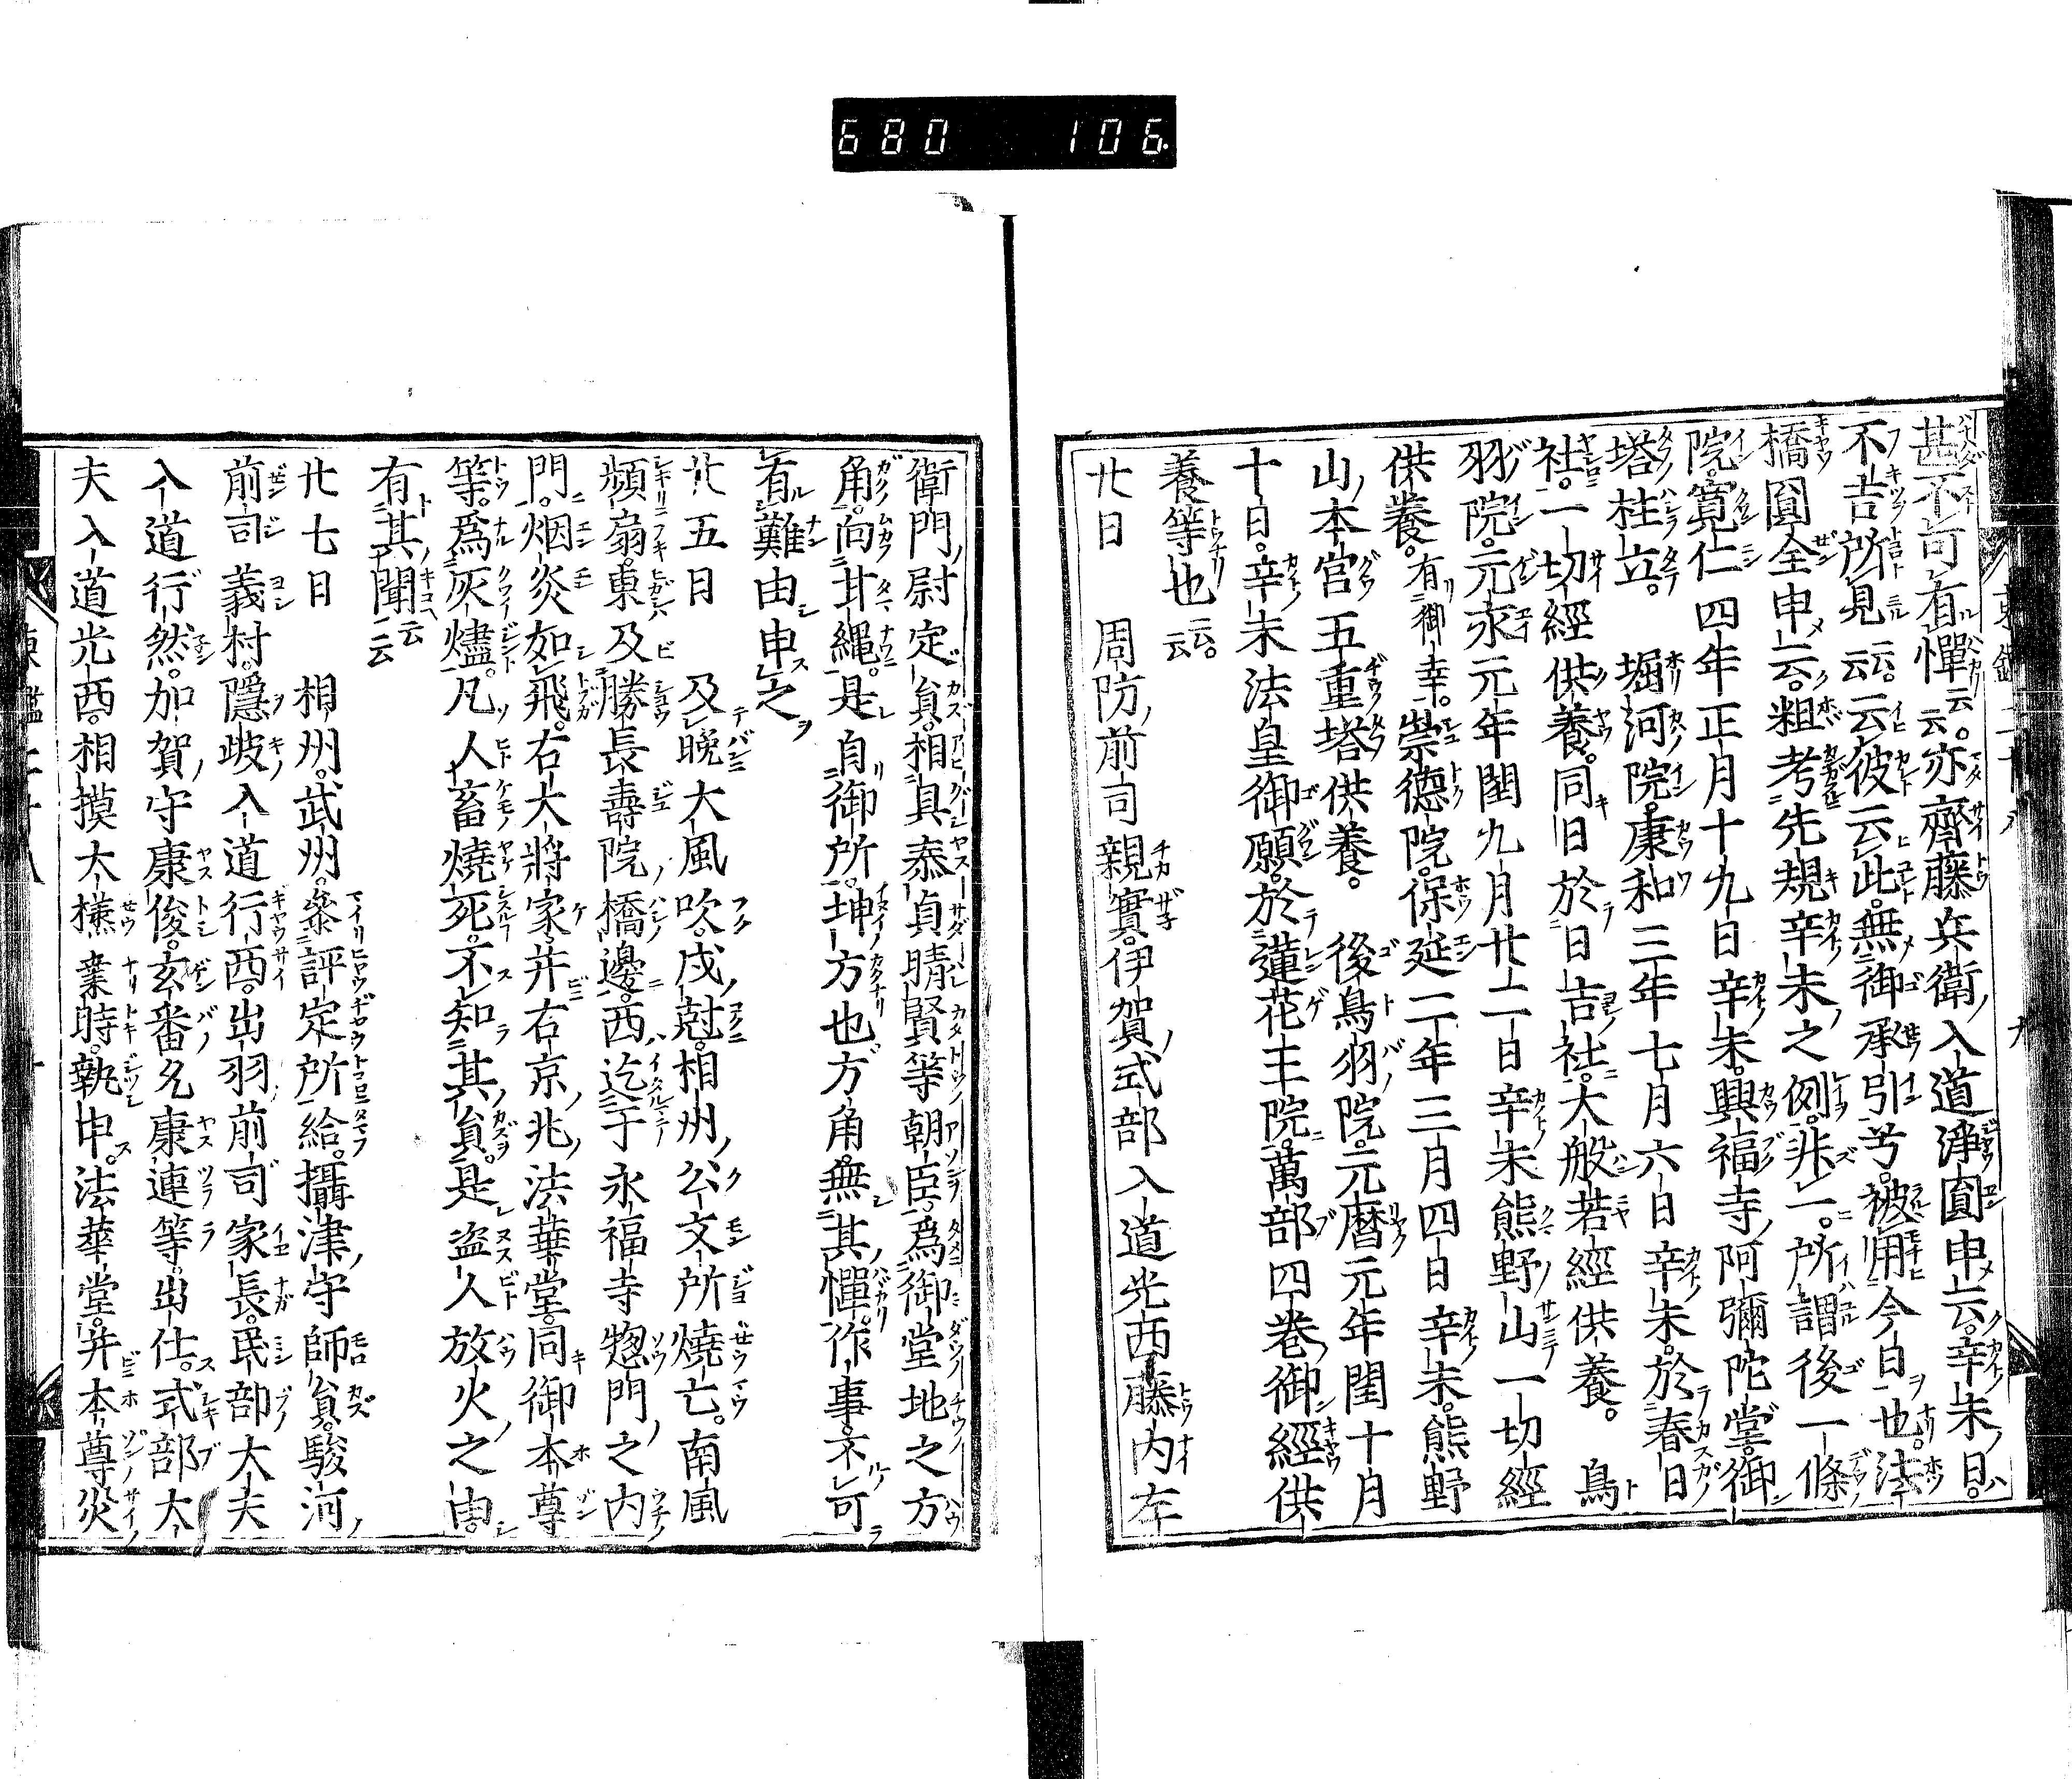 680 106
甚不可有憚云云。亦齊藤兵衛入道淨圓申云。辛未日。
不吉所見云云。云彼云此。無御承引兮。被用今日也。法
橋圓全申云。粗考先規辛未之例。非一。所謂後一條
院。寛仁四年正月十九日辛未。興福寺阿彌陀堂。御
塔柱立。　堀河院。康和三年七月六日辛未。於春日
社。一切經供養。同日於日吉社。大般若經供養。　鳥
羽院。元永元年閏九月廿二日辛未熊野山一切經
供養。有御幸。崇德院。保延二年三月四日辛未。熊野
山本宮五重塔供養。　後鳥羽院。元暦元年閏十月
十日。辛未法皇御願。於蓮花王院。萬部四卷御經供
養等也云云。
廿日　周防前司親實。伊賀式部入道光西藤内左
衛門尉定員。相具泰貞晴賢等朝臣。爲御堂地之方
角。向甘繩。是自御所。坤方也。方角。無其憚。作事。不可
有難由申之
廿五日　及晩大風吹。戌尅。相州公文所燒亡。南風
頻扇。東及勝長壽院橋邊。西迄于永福寺惣門之内
門。烟炎如飛。右大將家并右京兆法華堂。同御本尊
等。爲灰燼。凡人畜燒死。不知其員。是盗人放火之由。
有其聞云云
廿七日　相州。武州。參評定所給。攝津守師員。駿河
前司義村。隱岐入道行西。出羽前司家長。民部大夫
入道行然。加賀守康俊。玄番允康連等。出仕。式部大
夫入道光西。相摸大掾業時。執申。法華堂。并本尊災